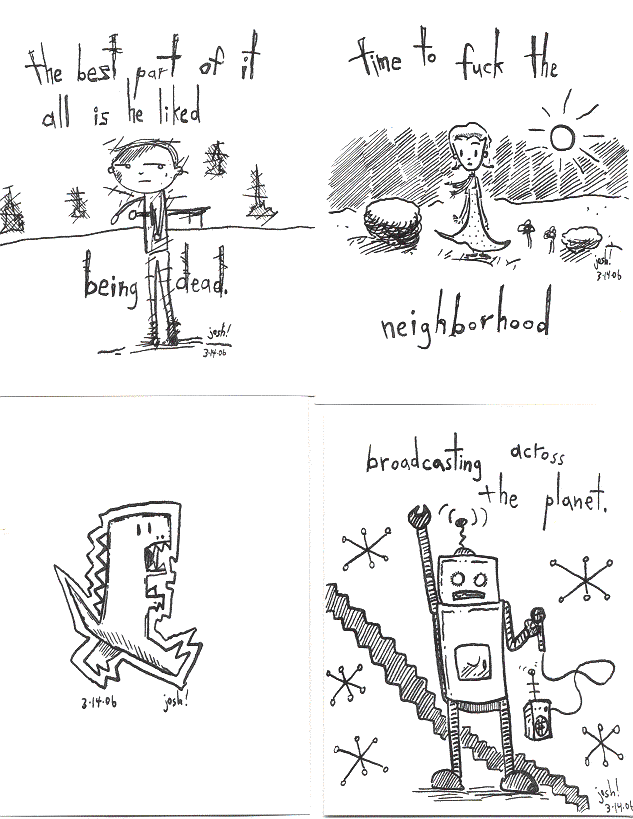 the best part of it
all is he liked
being dead.
josh!
3·14·06
time to fuck the
neighborhood
josh!
3·14·06
3·14·06
josh!
broadcasting across
the planet.
josh!
3·14·06